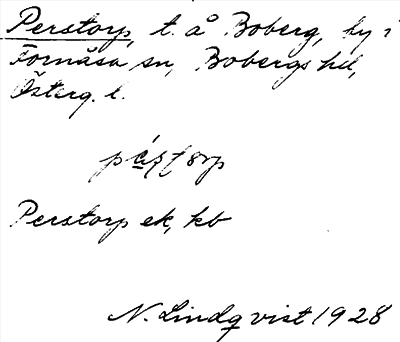 Perstorp, t. å Boberg, by i
Fornåsa sn, Bobergs hd,
Österg. l.
Perstorp ek, kb
N. Lindqvist 1928